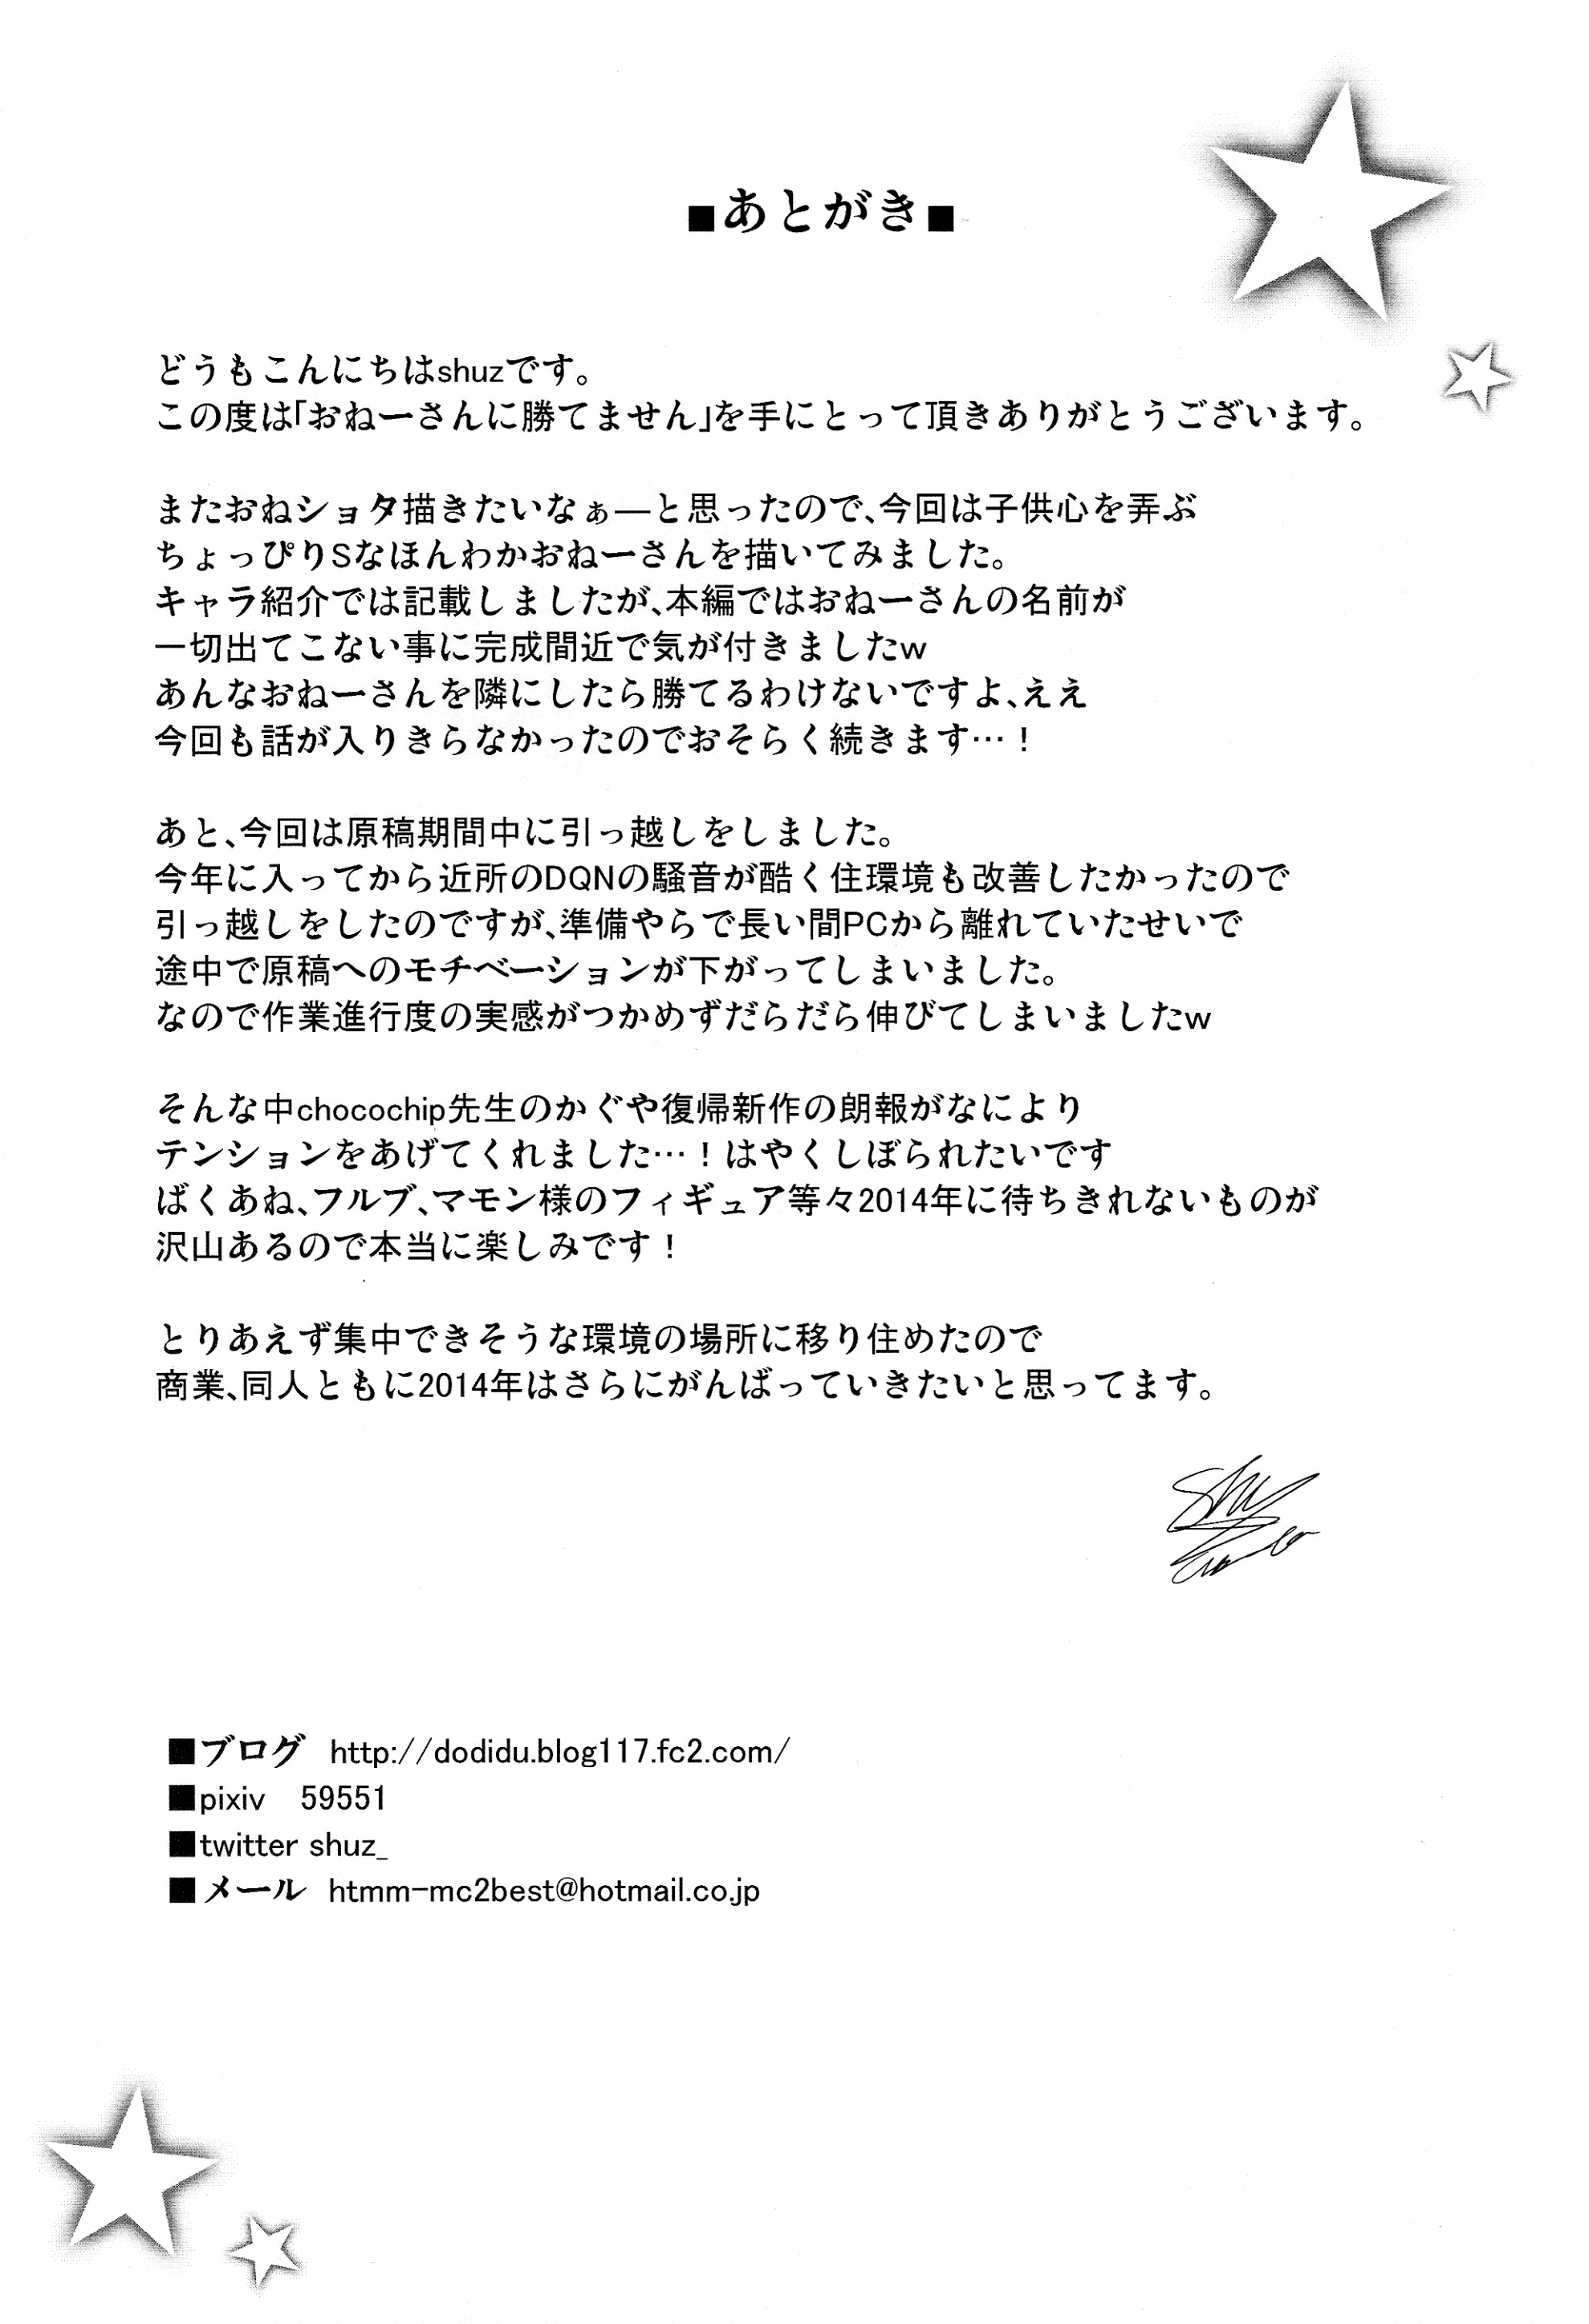 ■あとがき■
どうもこんにちはshuzです。
この度は「おねーさんに勝てません」を手にとって頂きありがとうございます。
またおねショタ描きたいなぁ―と思ったので、今回は子供心を弄ぶ
ちょっぴりSなほんわかおねーさんを描いてみました。
キャラ紹介では記載しましたが、本編ではおねーさんの名前が
一切出てこない事に完成間近で気が付きましたw
あんなおねーさんを隣にしたら勝てるわけないですよ、ええ
今回も話が入りきらなかったのでおそらく続きます…！
あと、今回は原稿期間中に引っ越しをしました。
今年に入ってから近所のDQNの騒音が酷く住環境も改善したかったので
引っ越しをしたのですが、準備やらで長い間PCから離れていたせいで
途中で原稿へのモチベーションが下がってしまいました。
なので作業進行度の実感がつかめずだらだら伸びてしまいましたw
そんな中chocochip先生のかぐや復帰新作の朗報がなにより
テンションをあげてくれました…！はやくしぼられたいです
ばくあね、フルブ、マモン様のフィギュア等々2014年に待ちきれないものが
沢山あるので本当に楽しみです！
とりあえず集中できそうな環境の場所に移り住めたので
商業、同人ともに2014年はさらにがんばっていきたいと思ってます。
Shu
■ブログ http://dodidu.blog117.fc2.com/
■pixiv 59551
■twitter shuz_
■メール htmm-mc2best@hotmail.co.jp